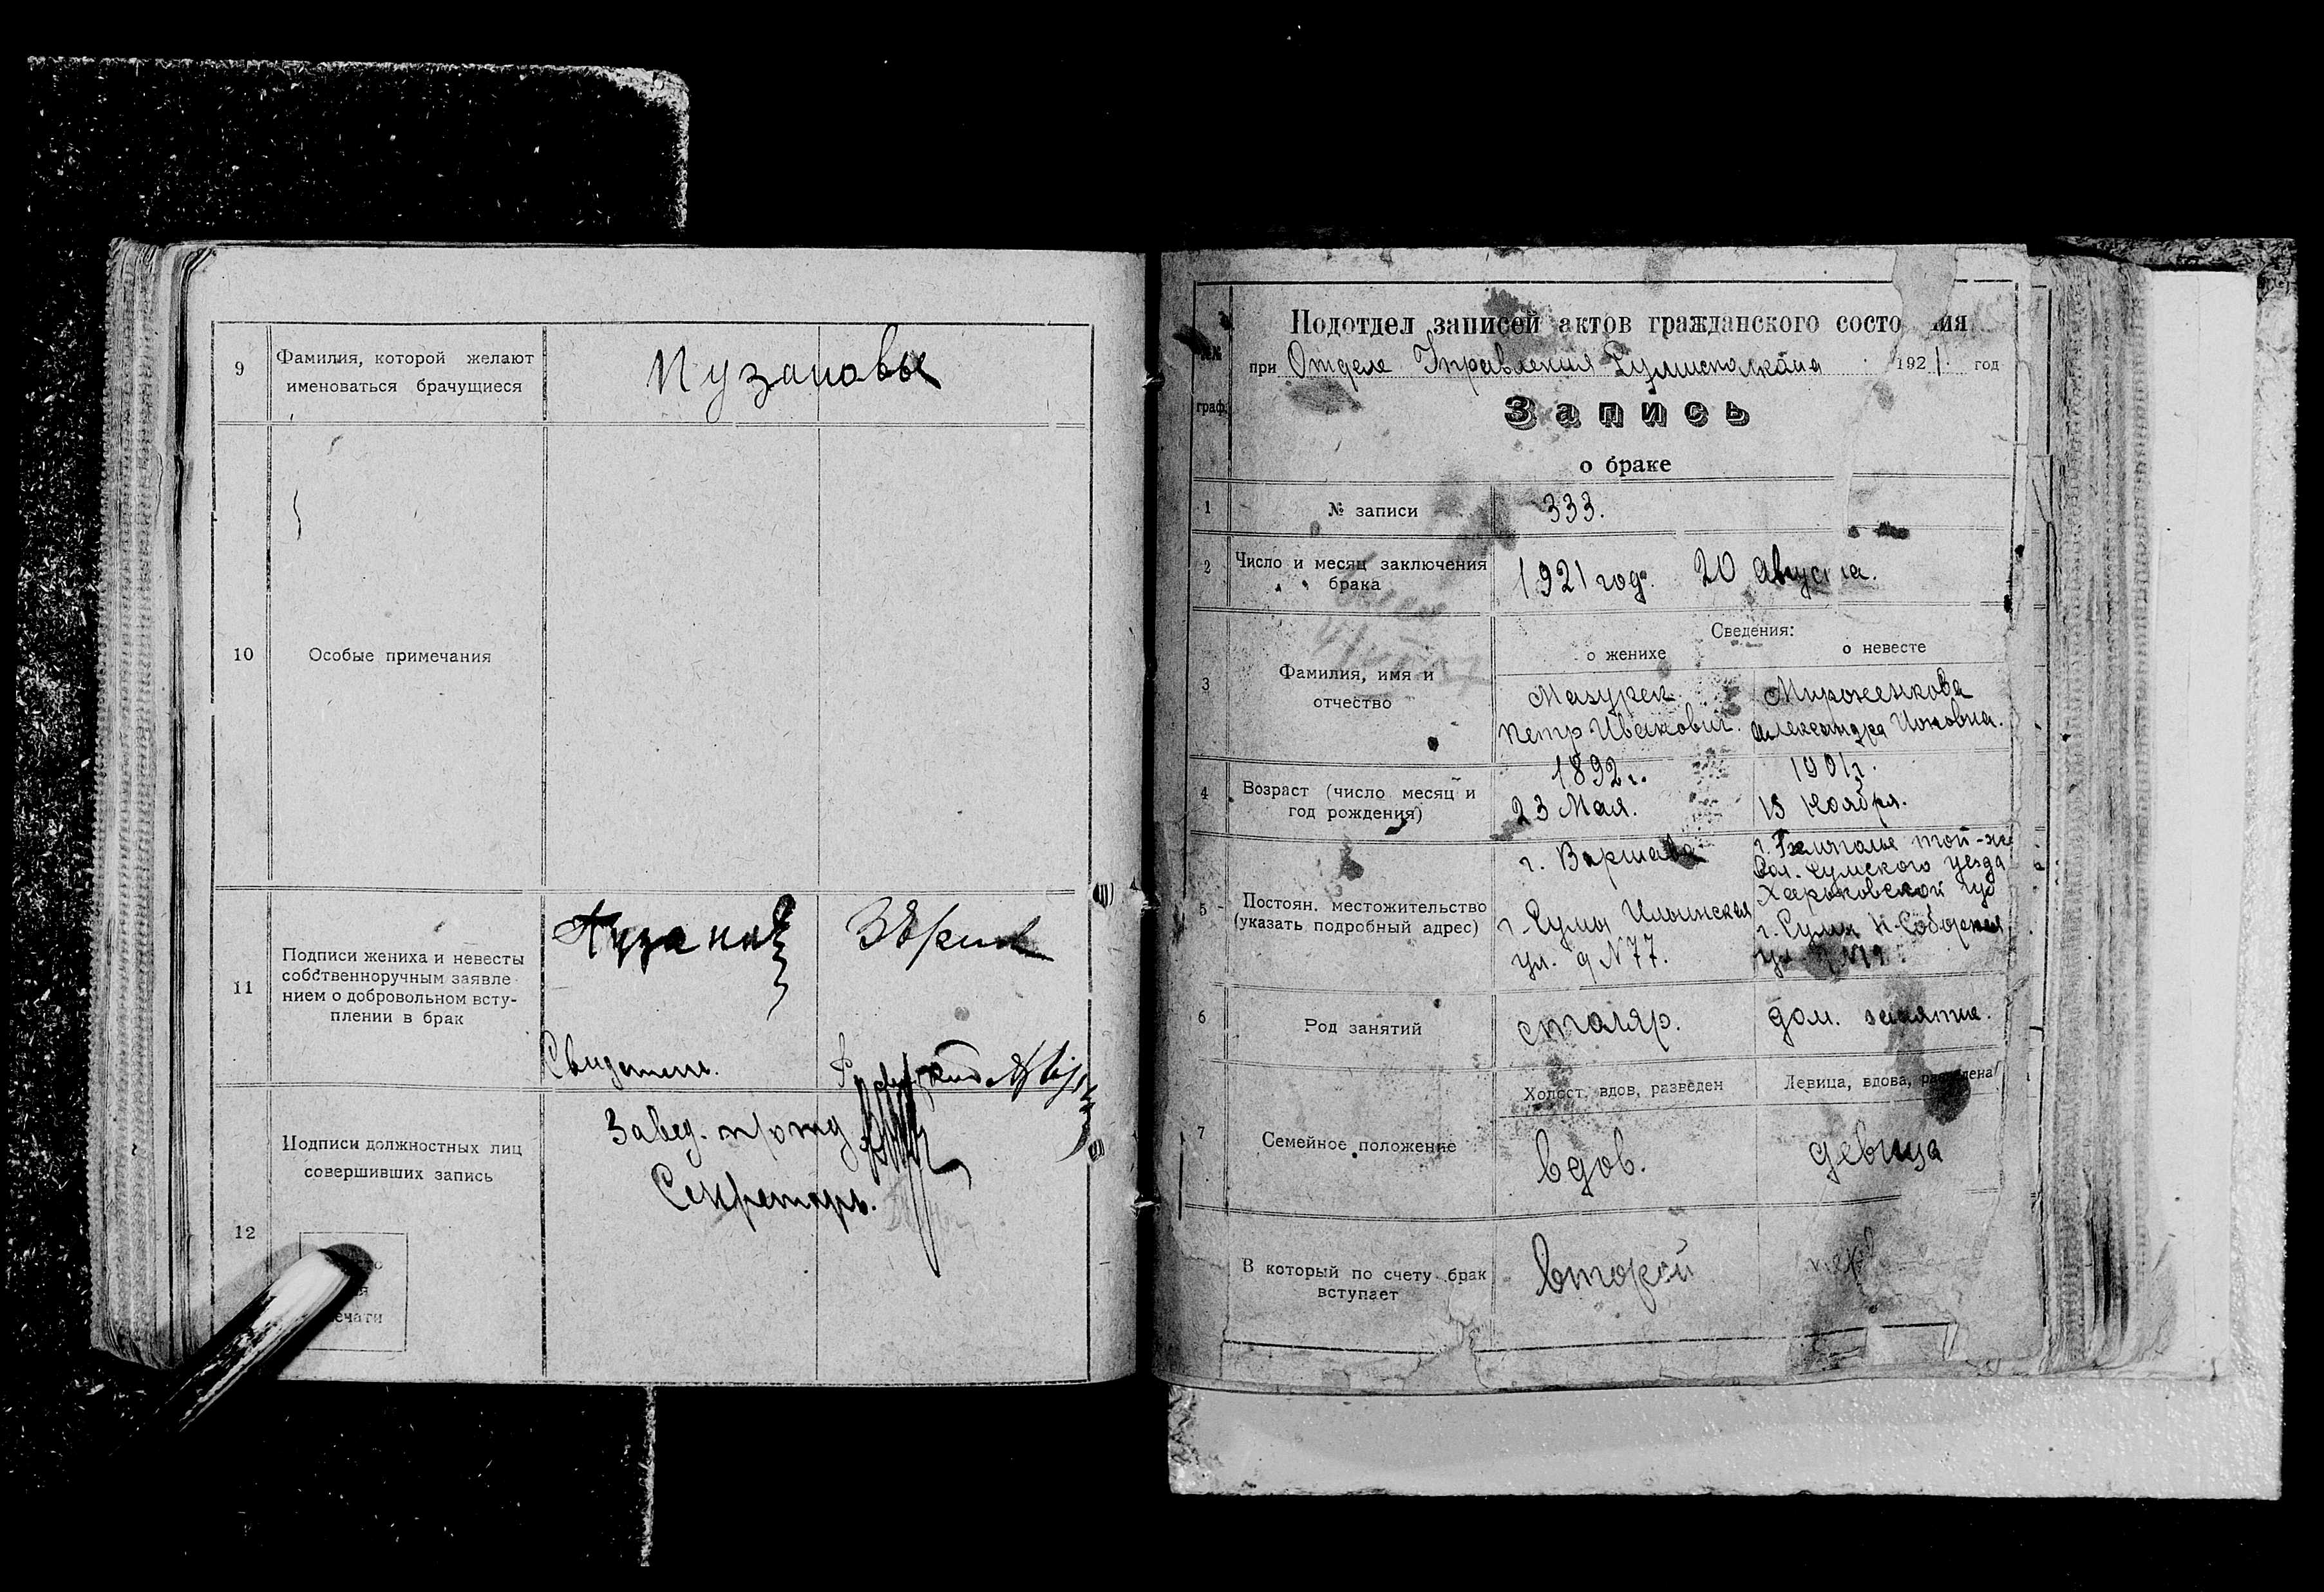 9
Фамилия, которой желают
именоваться брачущиеся
Пузановы
10
Особые примечания
11
Подписи жениха и невесты
собственноручным заявле-
нием о добровольном всту-
плении в брак
Пузанов
Свидетель.
12
Подписи должностных лиц
совершивших запись
Завед.
Секретарь.
печати
Подотдел записей актов гражданского состояния
при Отделе Управления Сумисполкома 1921 год
граф.
Запись
о браке
1
№ записи
333.
2
Число и месяц заключения
брака
1921 год. 20 Августа.
Сведения:
о женихе
о невесте
3
Фамилия, имя и
отчество
Мазурек
Петр Иванович.
Мироненкова
Александра Ионовна.
4
Возраст (число месяц и
год рождения)
1892 г.
23 Мая.
1901 г.
15 Ноября.
5
Постоян. местожительство
(указать подробный адрес)
г. Варшава
г. Сумы Ильинская
ул. д N 77.
той-же
вол. Сумского уезда
Харьковской губ
г. Сумы Н-Соборная
6
Род занятий
столяр.
дом. занятие.
7
Семейное положение
Холост, вдов, разведен
Девица, вдова, разведена
вдов.
девица
В который по счету брак
вступает
второй